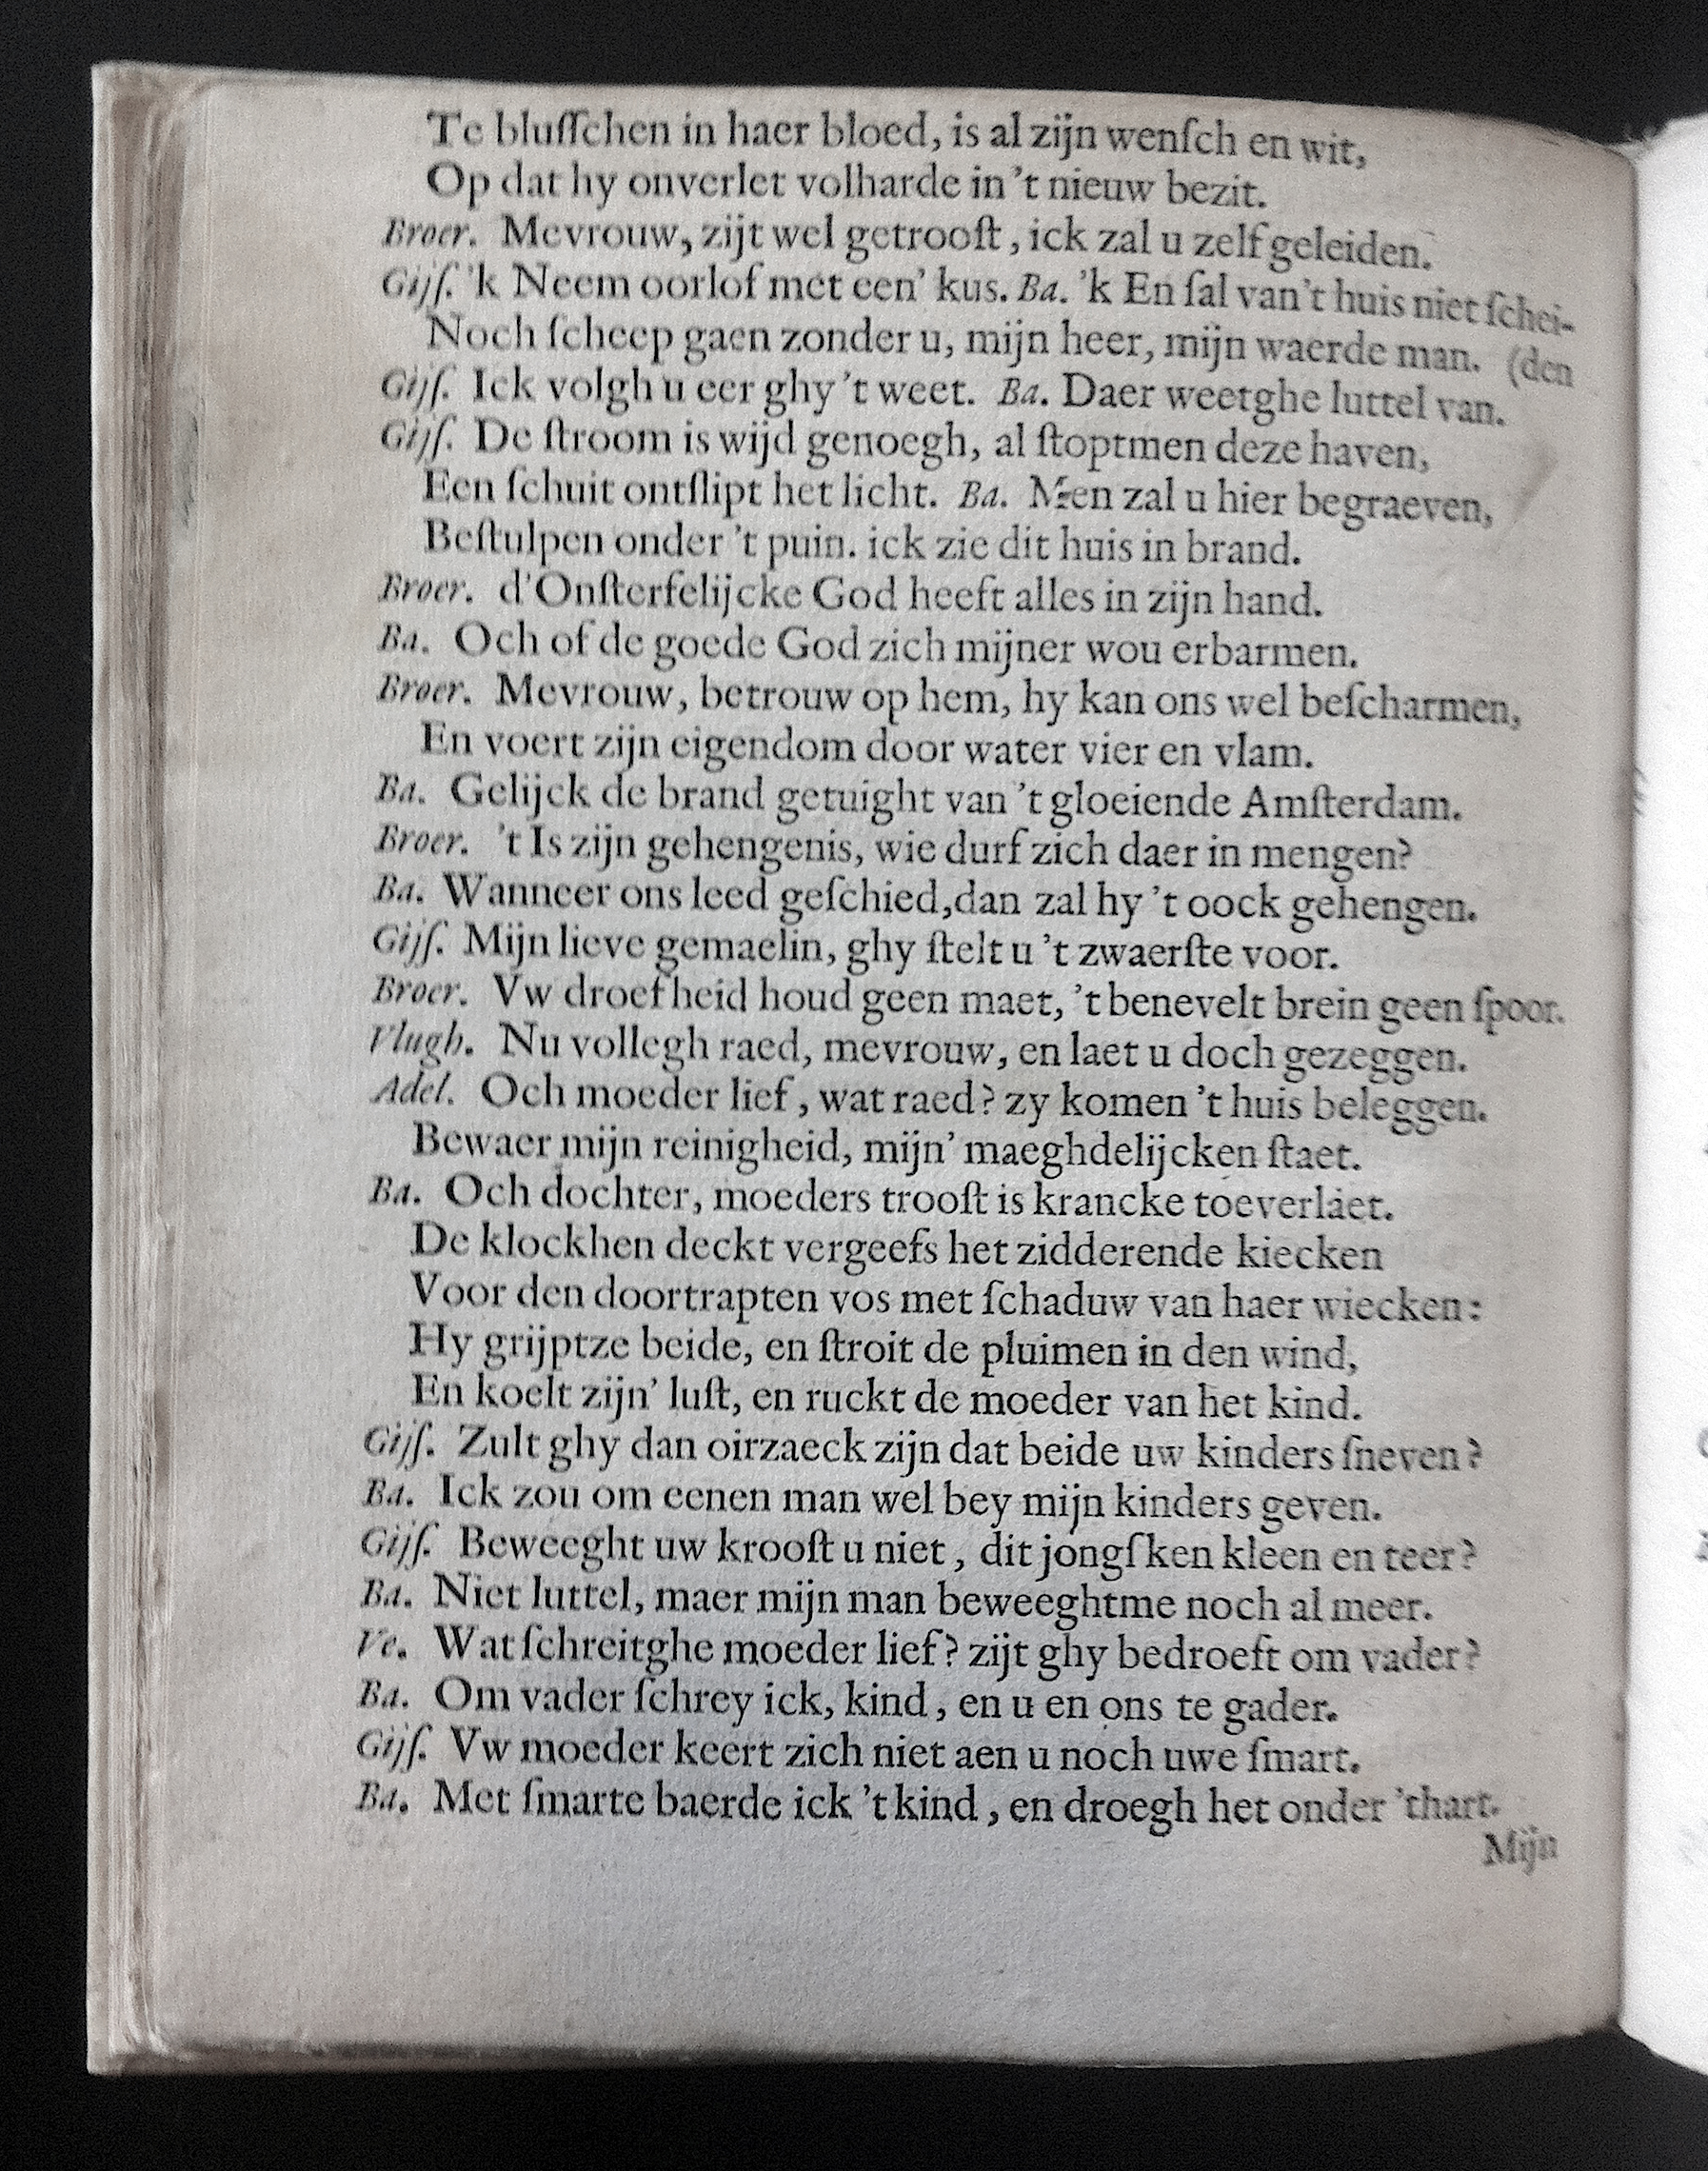 Te bluſſchen in haer bloed, is al zijn wenſch en wit,
Op dat hy onverlet volharde in 't nieuw bezit.
Broer. Mevrouw, zijt wel getrooſt, ick zal u zelf geleiden.
Gijſ. 'k Neem oorlof met een' kus. Ba. 'k En ſal van't huis niet ſchei-
Noch ſcheep gaen zonder u, mijn heer, mijn waerde man. (den
Gijſ. Ick volgh u eer ghy 't weet. Ba. Daer weetghe luttel van.
Gijſ. De ſtroom is wijd genoegh, al ſtoptmen deze haven,
Een ſchuit ontſlipt het licht. Ba. Men zal u hier begraeven,
Beſtulpen onder 't puin. ick zie dit huis in brand.
Broer. d'Onſterfelijcke God heeft alles in zijn hand.
Ba. Och of de goede God zich mijner wou erbarmen.
Broer. Mevrouw, betrouw op hem, hy kan ons wel beſcharmen,
En voert zijn eigendom door water vier en vlam.
Ba. Gelijck de brand getuight van 't gloeiende Amſterdam.
Broer. 't Is zijn gehengenis, wie durf zich daer in mengen?
Ba. Wanneer ons leed geſchied,dan zal hy 't oock gehengen.
Gijſ. Mijn lieve gemaelin, ghy ſtelt u 't zwaerſte voor.
Broer. Vw droefheid houd geen maet, 't benevelt brein geen ſpoor.
Vlugh. Nu vollegh raed, mevrouw, en laet u doch gezeggen.
Adel. Och moeder lief, wat raed? zy komen 't huis beleggen.
Bewaer mijn reinigheid, mijn' maeghdelijcken ſtaet.
Ba. Och dochter, moeders trooſt is krancke toeverlaet.
De klockhen deckt vergeefs het zidderende kiecken
Voor den doortrapten vos met ſchaduw van haer wiecken:
Hy grijptze beide, en ſtroit de pluimen in den wind,
En koelt zijn' luſt, en ruckt de moeder van het kind.
Gijſ. Zult ghy dan oirzaeck zijn dat beide uw kinders ſneven?
Ba. Ick zou om eenen man wel bey mijn kinders geven.
Gijſ. Beweeght uw krooſt u niet, dit jongſken kleen en teer?
Ba. Niet luttel, maer mijn man beweeghtme noch al meer.
Ve. Wat ſchreitghe moeder lief? zijt ghy bedroeft om vader?
Ba. Om vader ſchrey ick, kind, en u en ons te gader.
Gijſ. Vw moeder keert zich niet aen u noch uwe ſmart.
Ba. Met ſmarte baerde ick 't kind, en droegh het onder 'thart.
Mijn